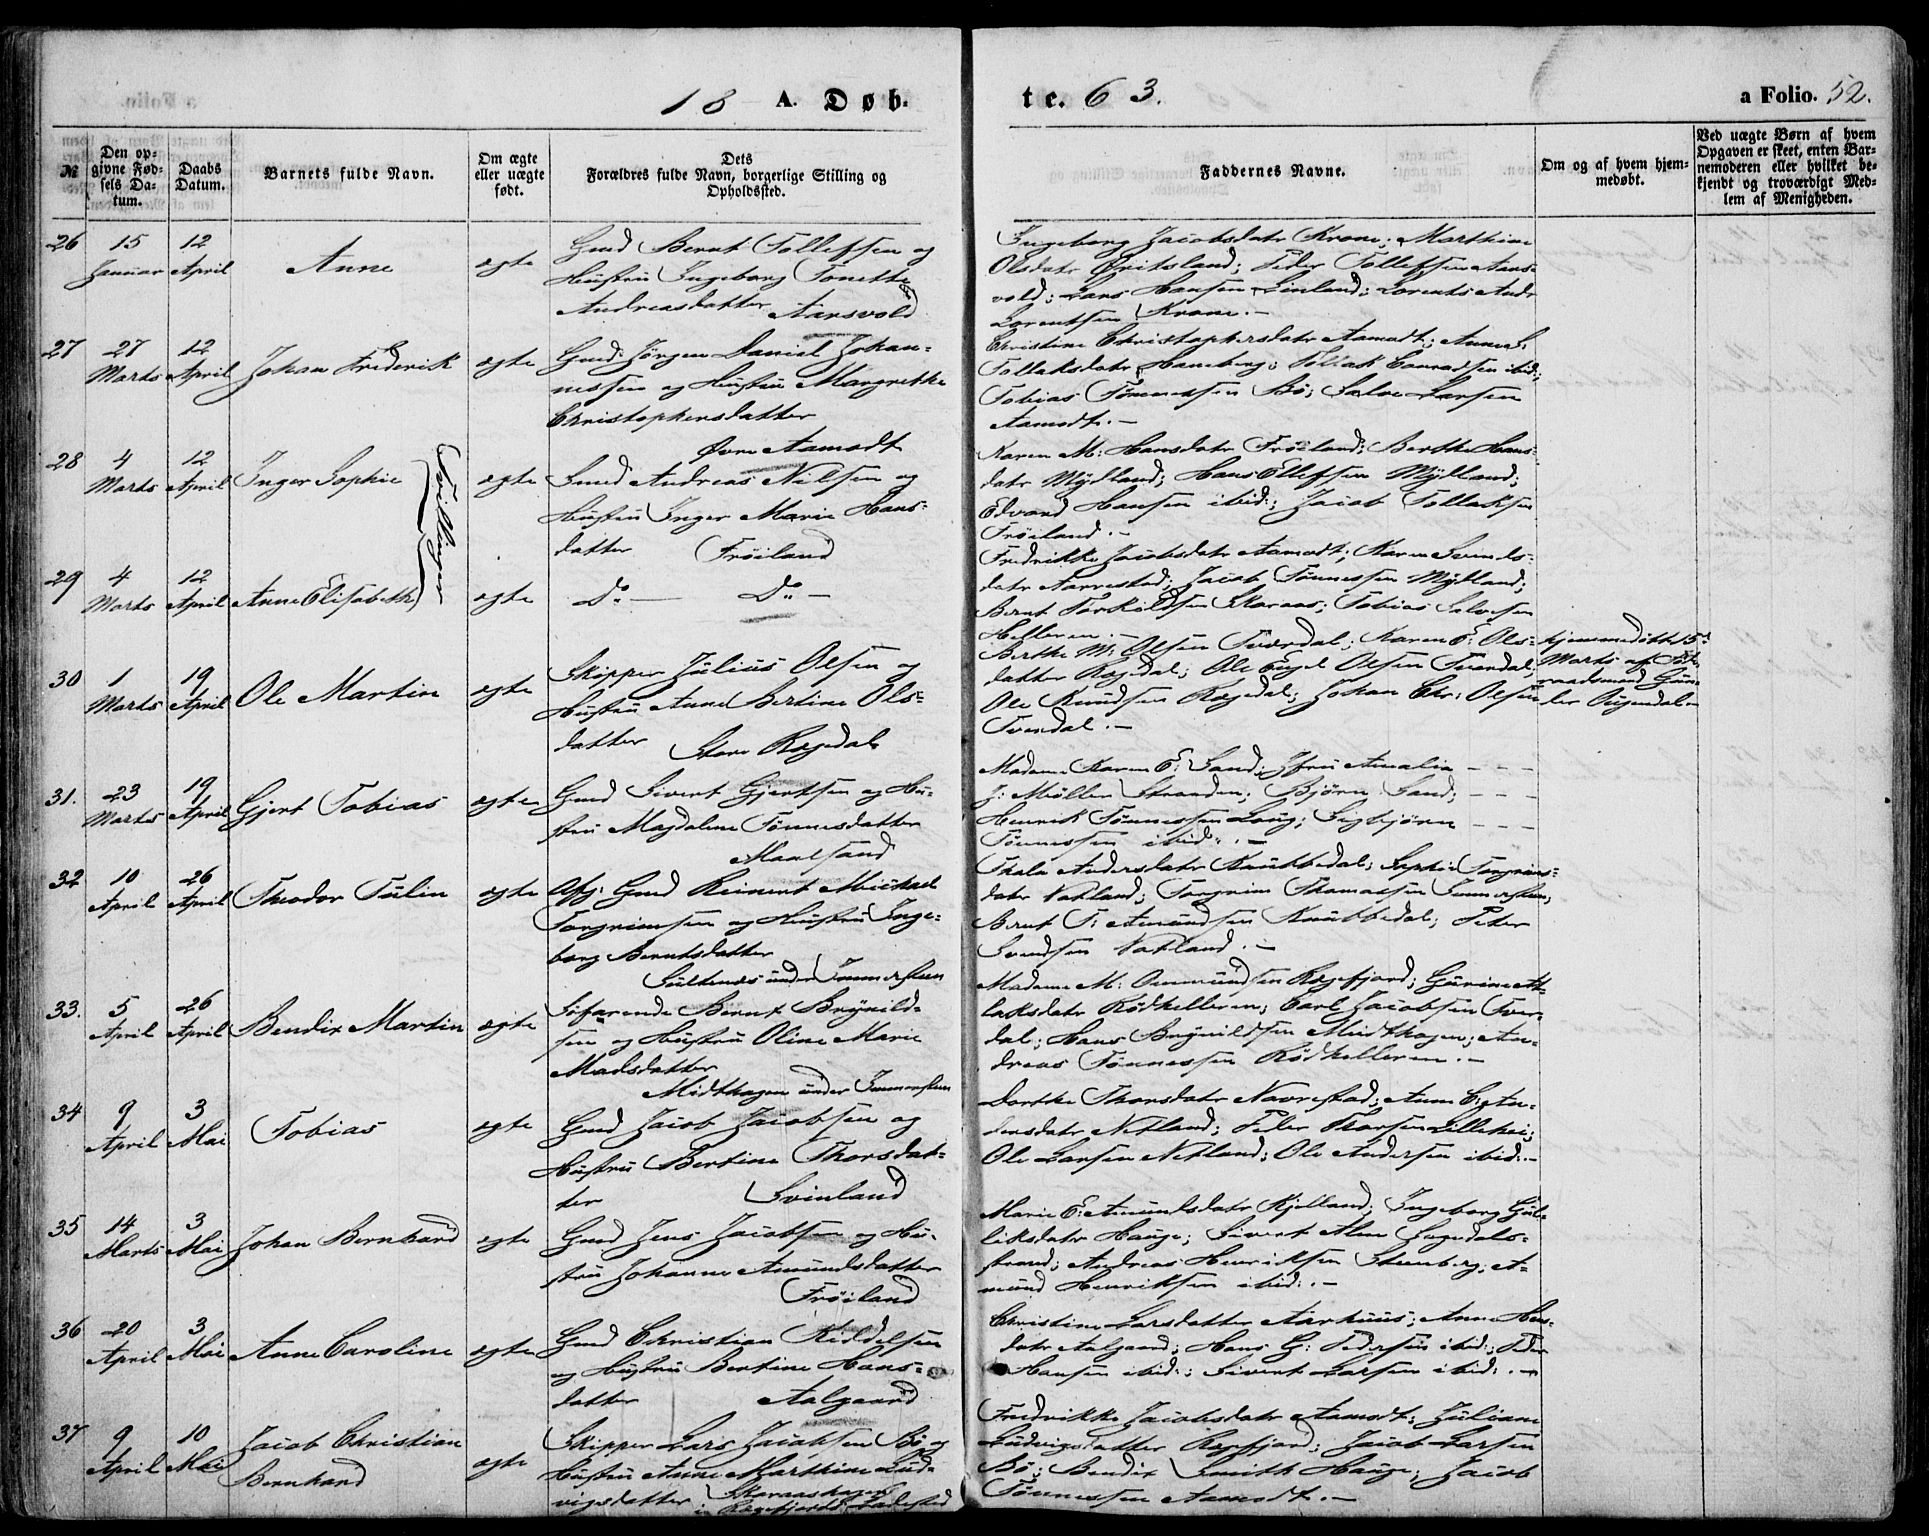 18 A. Døb-
te. 63.
a Folio. 52.
№
Den op-
givne Fød-
sels Da-
tum.
Daabs
Datum.
Barnets fulde Navn.
Om ægte
eller uægte
født.
Dets
Forældres fulde Navn, borgerlige Stilling og
Opholdssted.
Faddernes Navne.
Om og af hvem hjem-
medøbt.
Ved uægte Børn af hvem
Opgaven er skeet, enten Bar-
nemoderen eller hvilket be-
kjendt og troværdigt Med-
lem af Menigheden.
26 15 Januar 12 April Anne ægte
Gmd Bernt Tollefsen og
Hustru Ingeborg Tonette
Andreasdatter Aarsvold
Ingeborg Jacobsdatr Krone; Marthine
Olsdatr Øritsland; Peder Tollefsen Aars-
vold; Lars Hansen Linland; Lorents Andr
Lorentsen Krone.-
27 27 Marts 12 April Johan Frederik ægte
Gmd: Jörgen Daniel Johan-
nessen og Hustru Margrethe
Christophersdatter
Øvre Aamodt
Christine Christophersdatr Aamodt; Anne S.
Tollaksdatr Haneberg; Tollak Conradsen ibid:;
Tobias Tönnessen Bö; Salve Larsen
Aamodt.-
28 4 Marts 12 April Inger Sophie ægte
Tvillinger
Smed Andreas Nilsen og
Hustru Inger Marie Hans-
datter Fröiland
Karen M: Hansdatr Fröiland; Berthe Hans-
datr Mydland; Hans Ellefsen Mydland;
Edvard Hansen ibid:; Jacob Tollaksen
Fröiland.-
29 4 Marts 12 April Anne Elisabeth ægte
Do - Do -
Fredrikke Jacobsdatr Aamodt; Karen Svends-
datr Aarrestad; Jacob Tönnessen Mydland;
Bernt Torkildsen Skaraas; Tobias Salvesen
Helleren.-
30 1 Marts 19 April Ole Martin ægte
Skipper Julius Olsen og
Hustru Anne Bertine Ols-
datter Store Rægedal
Berthe M: Olsen Tverdal; Karen E: Ols-
datter Rægedal; Ole Engel Olsen Tverdal;
Ole Knudsen Rægedal; Johan Chr: Olsen
Tverdal.-
hjemmedöbt 15d
Marts af
Gun-
der
31. 23 Marts 19 April Gjert Tobias ægte
Gmd Sivert Gjertsen og Hu-
stru Magdalene Tönnesdatter
Maalsand
Madame Karen E: Sand; Jfru Amalia
J: Möller Stranden; Björn Sand;
Henrik Tönnessen Loug; Sigbjörn
Tönnessen ibid:.-
32 10 April 26 April Theodor Tulin ægte
Afg: Gmd Reinert Michael
Torgrimsen og Hustru Inge-
borg Berntsdatter
under Immerstein
Thale Andersdatr Knubbedal; Sophie Torgrims-
datr Natland; Torgrim Thomassen Immerstein;
Bernt T: Amundsen Knubbedal; Peter
Svendsen Natland.-
33. 5 April 26 April Bendix Martin ægte
Söfarende Bernt Brynild-
sen og Hustru Oline Marie
Madsdatter
Midthagen under Immerstein
Madame M: Omundsen Rægefjord; Gurine As-
laksdatr Rödhelleren; Carl Jacobsen Tver-
dal; Hans Brynildsen Midthagen; An-
dreas Tönnessen Rödhelleren.-
34 9 April 3 Mai Tobias ægte
Gmd Jacob Jacobsen og
Hustru Bertine Thorsdat-
ter Svinland
Dorthe Thorsdatr Navrestad; Anne E: An-
dersdatr Netland; Peder Thorsen Lillehei;
Ole Larsen Netland; Ole Andersen ibid:.-
35 14 Marts 3 Mai Johan Bernhard ægte
Gmd Jens Jacobsen og Hu-
stru Johanne Amundsdatter
Fröiland
Marie E: Amundsdatr Kjelland; Ingeborg Gul-
liksdatr Hauge; Sivert Alm
strand; Andreas Henriksen Steenberg; A-
mund Henriksen ibid:.-
36 20 April 3 Mai Anne Caroline ægte
Gmd Christian Kiddelsen
og Hustru Bertine Hans-
datter Aalgaard
Christine Larsdatter Aarhuus; Anne Hans-
datr Aalgaard; Hans G: Pedersen ibid:; Peder
Hansen ibid:; Sivert Larsen ibid:.-
37 9 April 10 Mai Jacob Christian
Bernhard ægte
Skipper Lars Jacobsen Bö og
Hustru Anne Marthine Lud-
vigsdatter Skaraashagen
i Rægefjords Ladested
Fredrikke Jacobsdatr Aamodt; Juliane
Ludvigsdatter Rægefjord; Jacob Larsen
Bö; Bendix Smith Hauge; Jacob
Tönnessen Aamodt.-